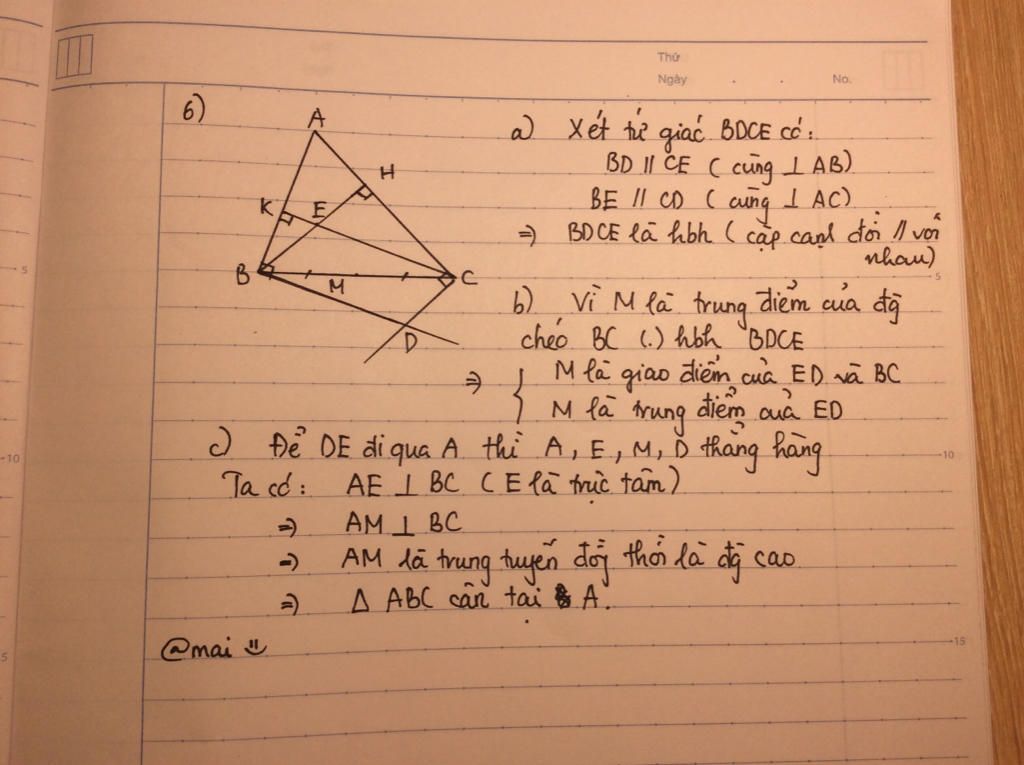 Thứ
Ngày . . No.
6)
A
H
K
E
B
M
C
D
a) Xét tứ giác BDCE có:
BD // CE ( cùng ⊥ AB)
BE // CD ( cùng ⊥ AC)
=> BDCE là hbh ( cặp cạnh đối // với
nhau)
b) Vì M là trung điểm của đg
chéo BC (.) hbh BDCE
=> { M là giao điểm của ED và BC
M là trung điểm của ED
c) Để DE đi qua A thì A, E, M, D thẳng hàng
Ta có: AE ⊥ BC ( E là trực tâm)
=> AM ⊥ BC
=> AM là trung tuyến đồg thời là đg cao
=> Δ ABC cân tại A.
@mai
5
10
5
10
15
5